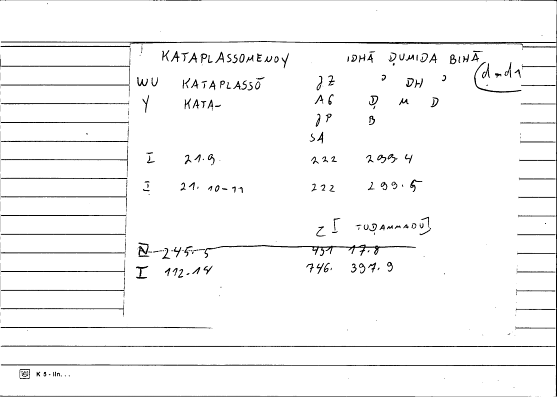 KATAPLASSOMENOY IDHĀ ḌUMIDA BIHĀ
WU KATAPLASSŌ JZ ' DH ' d-d1
Y KATA- AG Ḍ M D
JP B
SA
I 21.9 222 299.4
I 21.10-11 222 299.5
Z [ TUḌAMMADU]
N 245.5 451 17.8
I 112.14 746. 397.9
K 5-lln...